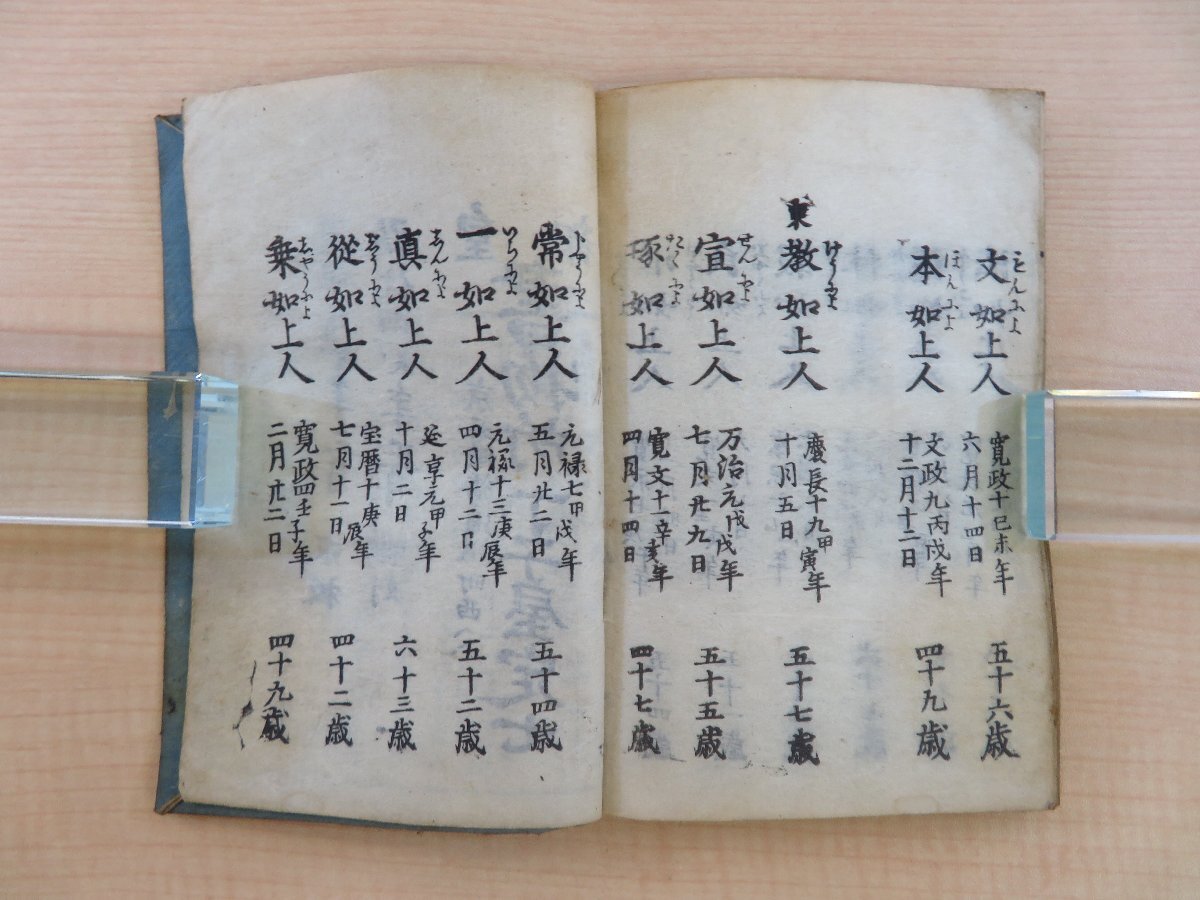 文如上人 寛政十一己未年 六月十四日 五十六歳
本如上人 文政九丙戌年 十二月十二日 四十九歳
東
教如上人 慶長十九甲寅年 十月五日 五十七歳
宣如上人 万治元戊戌年 七月廿九日 五十五歳
琢如上人 寛文十一辛亥年 四月十四日 四十七歳
常如上人 元禄七甲戌年 五月廿二日 五十四歳
一如上人 元禄十三庚辰年 四月十二日 五十二歳
真如上人 延享元甲子年 十月二日 六十三歳
従如上人 宝暦十庚辰年 七月十一日 四十二歳
乗如上人 寛政四壬子年 二月廿二日 四十九歳